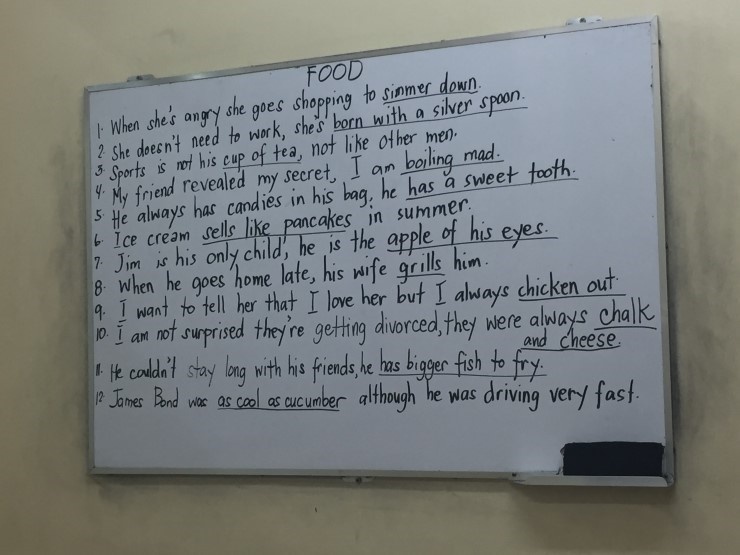 FOOD
1. When she's angry she goes shopping to simmer down.
2. She doesn't need to work, she's born with a silver spoon.
3. Sports is not his cup of tea, not like other men.
4. My friend revealed my secret, I am boiling mad.
5. He always has candies in his bag, he has a sweet tooth.
6. Ice cream sells like pancakes in summer.
7. Jim is his only child, he is the apple of his eyes.
8. When he goes home late, his wife grills him.
9. I want to tell her that I love her but I always chicken out.
10. I am not surprised they're getting divorced, they were always chalk
and cheese.
11. He couldn't stay long with his friends, he has bigger fish to fry.
12. James Bond was as cool as cucumber although he was driving very fast.